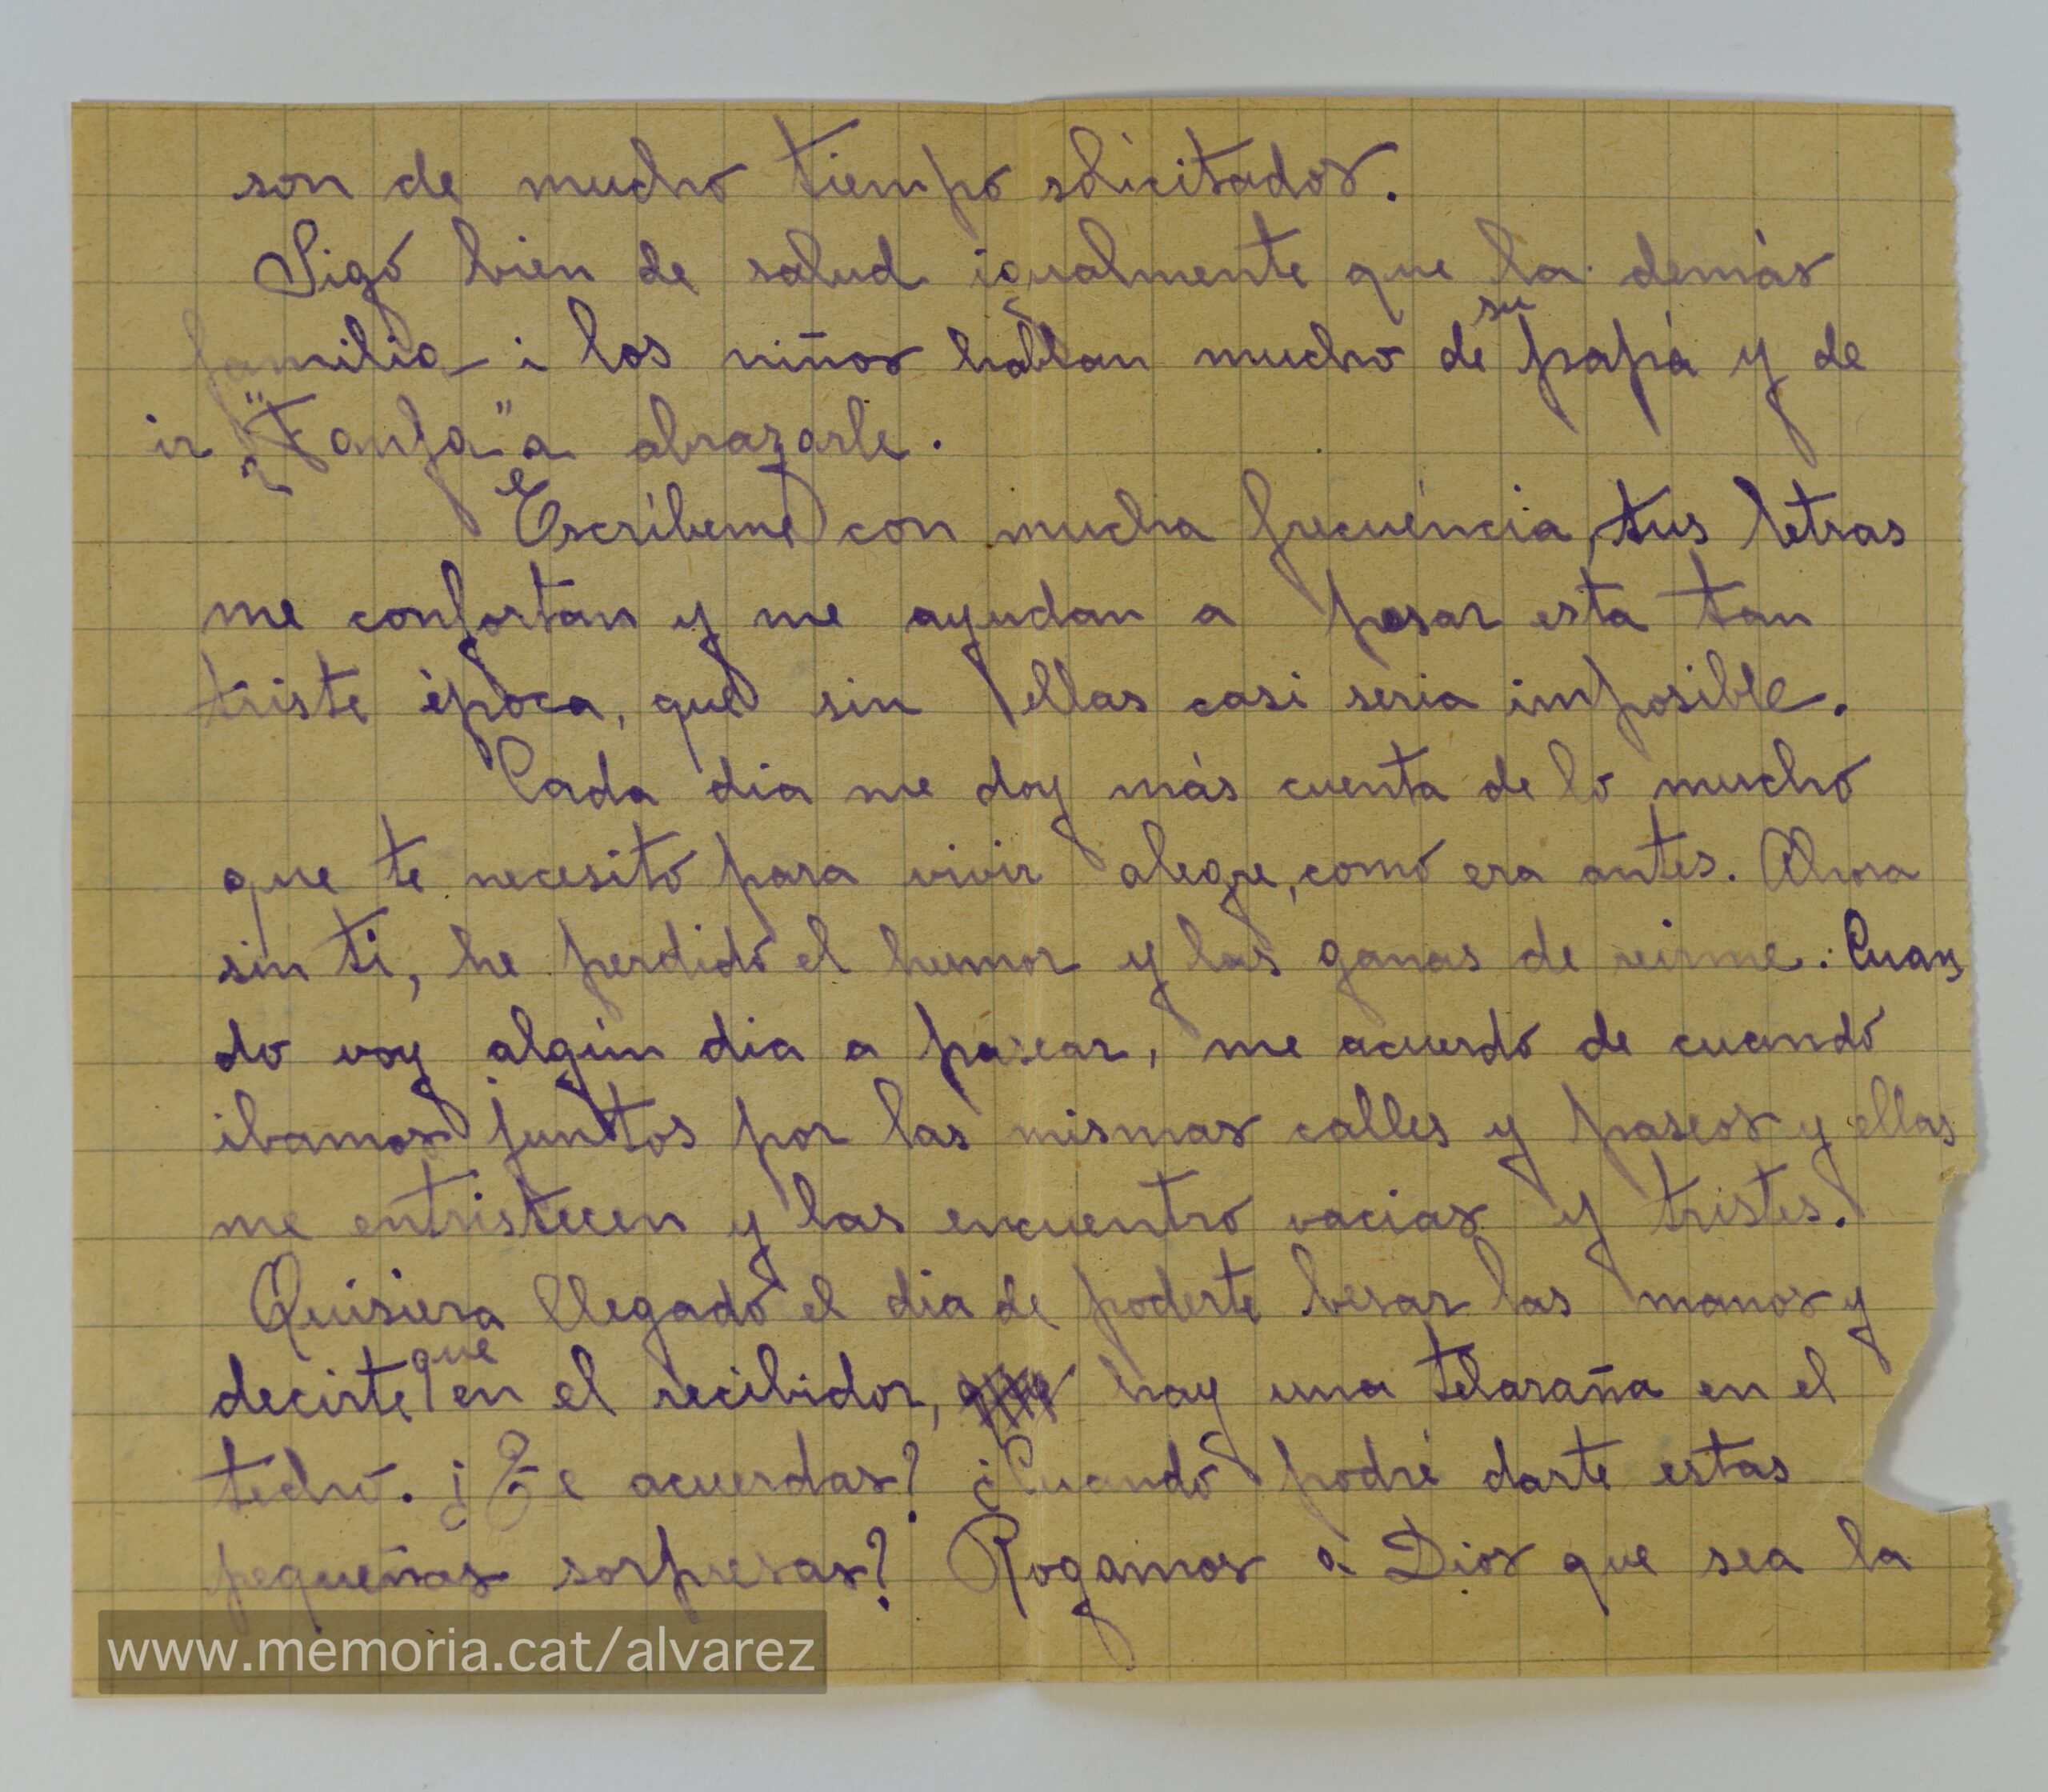 son de mucho tiempo solicitados.
Sigo bien de salud igualmente que la demás
familia i los niños hablan mucho de su papá y de
ir a "Fanfa" a abrazarle.
Escríbeme con mucha frecuéncia, tus letras
me confortan y me ayudan a pasar esta tan
triste época, que sin ellas casi seria imposible.
Cada dia me doy más cuenta de lo mucho
que te necesito para vivir alegre, como era antes. Ahora
sin ti, he perdido el humor y las ganas de reirme. Cuan
do voy algún dia a pasear, me acuerdo de cuando
ibamos juntos por las mismas calles y paseos y ellas
me entristecen y las encuentro vacias y tristes.
Quisiera llegado el dia de poderte besar las manos y
decirte que en el recibidor, hay una telaraña en el
techo. ¿Te acuerdas? ¿Cuando podré darte estas
pequeñas sorpresas? Rogamos a Dios que sea la
www.memoria.cat/alvarez